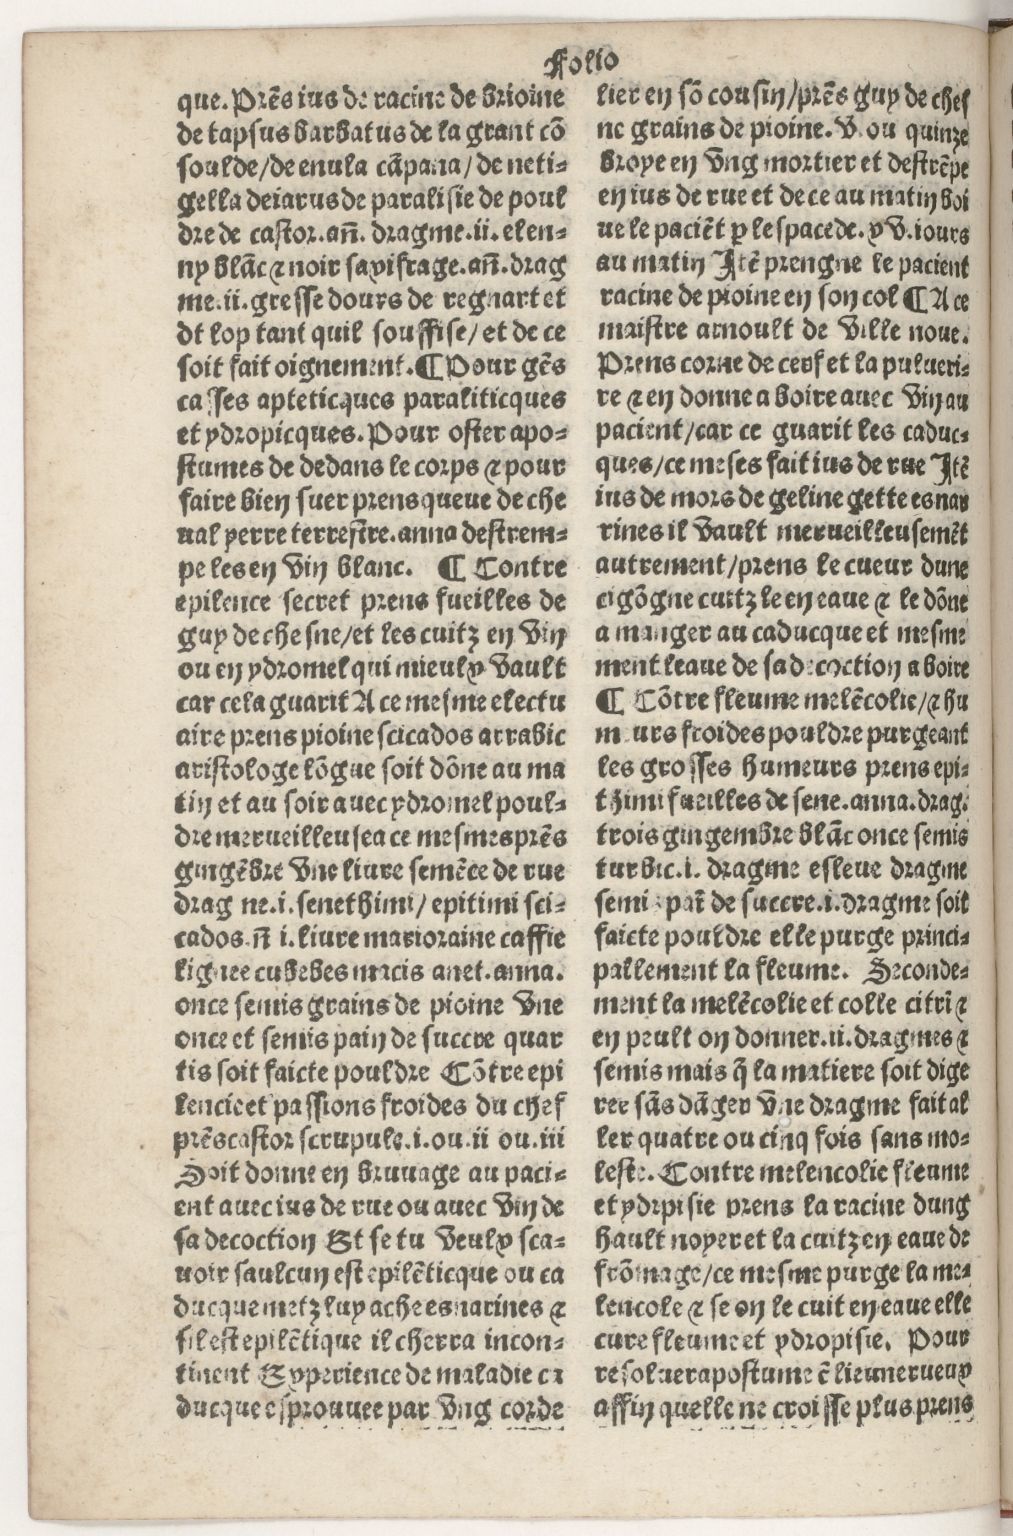 Folio
que. Prẽs ius de racine de brioine
de tapsus barbatus de la grant cõ
soulde/de enula cãpana/de neti-
gella deiarus de paralisie de poul
dre de castor. añ. dragme. ii. elen-
ny blãc & noir saxifrage. añ. drag
me. ii. gresse dours de regnart et
dt lop tant quil souffise/et de ce
soit fait oignement. ¶ Pour gẽs
casses apteticques paraliticques
et ydropicques. Pour oster apo-
stumes de dedans le corps & pour
faire bien suer prens queue de che
ual yerre terrestre. anna destrem-
pe les en vin blanc. ¶ Contre
epilence secret prens fueilles de
guy de chesne/et les cuitz en vin
ou en ydromel qui mieulx vault
car cela guarit A ce mesme electu
aire prens pioine scicados arrabic
aristologe lõgue soit dõne au ma
tin et au soir auec ydromel poul-
dre merueilleuse a ce mesmes prẽs
gingẽbre vne liure semẽce de rue
drag me. i. senethimi/epitimi sci-
cados. ñ i. liure marioraine caffie
lignee cubebes macis anet. anna.
once semis grains de pioine vne
once et semis pain de succre quar
tis soit faicte pouldre Cõtre epi
lencie et passions froides du chef
prẽs castor scrupule. i. ou. ii ou. iii
Soit donne en bruuage au paci-
ent auec ius de rue ou auec vin de
sa decoction Et se tu veulx sca-
uoir saulcun est epilẽticque ou ca
ducque metz luy ache es narines &
sil est epilẽtique il cherra incon-
tinent Experience de maladie ca
ducque esprouuee par vng corde
lier en sõ cousin/prẽs guy de ches
ne grains de pioine. v. ou quinze
broye en vng mortier et destrẽpe
en ius de rue et de ce au matin boi
ue le paciẽt p le space de. xv. iours
au matin Itẽ prengne le pacient
racine de pioine en son col ¶ A ce
maistre arnoult de ville noue.
Prens corne de cerf et la pulueri-
re & en donne a boire auec vin au
pacient/car ce guarit les caduc-
ques/ce meses fait ius de rue Itẽ
ius de mors de geline gette es nar
rines il vault merueilleusemẽt
autrement/prens le cueur dune
cigõgne cuitz le en eaue & le dõne
a manger au caducque et mesme
ment leaue de sa decoction a boire
¶ Cõtre fleume melẽcolie/& hu
meurs froides pouldre purgeant
les grosses humeurs prens epi-
thimi fueilles de sene. anna. drag.
trois gingembre blãc once semis
turbic. i. dragme esleue dragme
semi part de succre. i. dragme soit
faicte pouldre elle purge princi-
pallement la fleume. Seconde-
ment la melẽcolie et colle citri &
en peult on donner. ii. dragmes &
semis mais q̃ la matiere soit dige
ree sãs dãger vne dragme fait al
ler quatre ou cinq fois sans mo-
leste. Contre melencolie fleume
et ydrpisie prens la racine dung
hault noyer et la cuitz en eaue de
frõmage/ce mesme purge la me-
lencole & se on le cuit en eaue elle
cure fleume et ydropisie. Pour
resoluer apostume ẽ lieu nerueux
affin quelle ne croisse plus prens